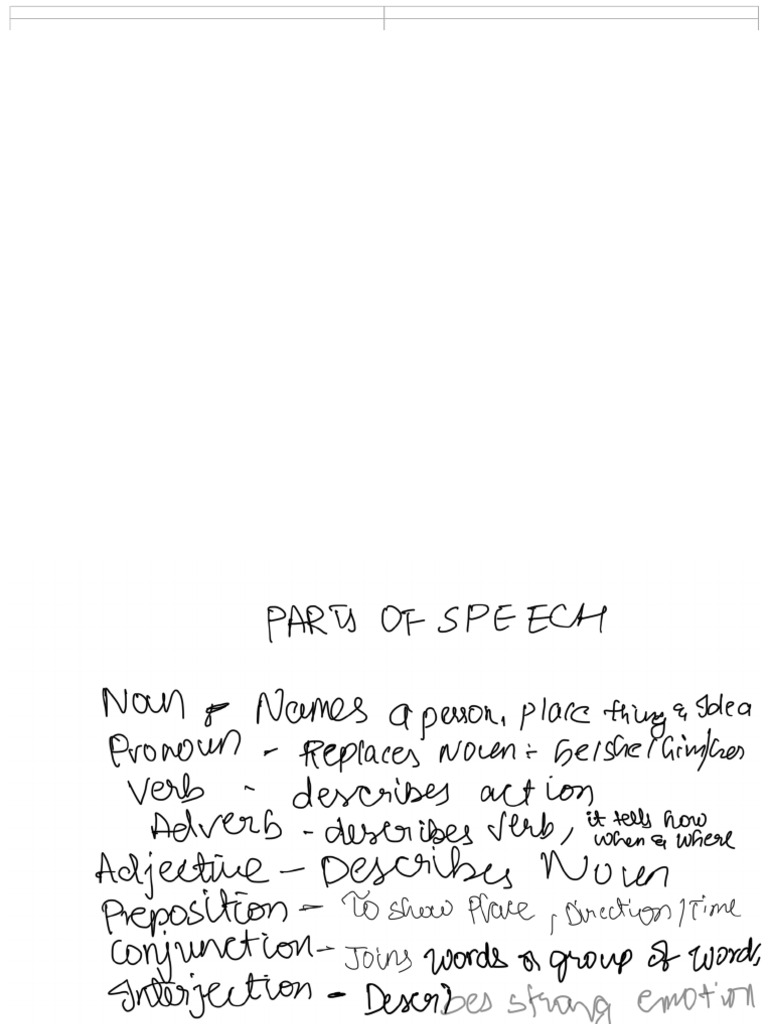 PARTS OF SPEECH
Noun - Names a person, place thing & Idea
Pronoun - Replaces Noun :- he/she/him/her
Verb - describes action
Adverb - describes verb, it tells how
when & where
Adjective - Describes Noun
Preposition - To show Place, Direction/Time
Conjunction - Joins words or group of words
Interjection - Describes strong emotion